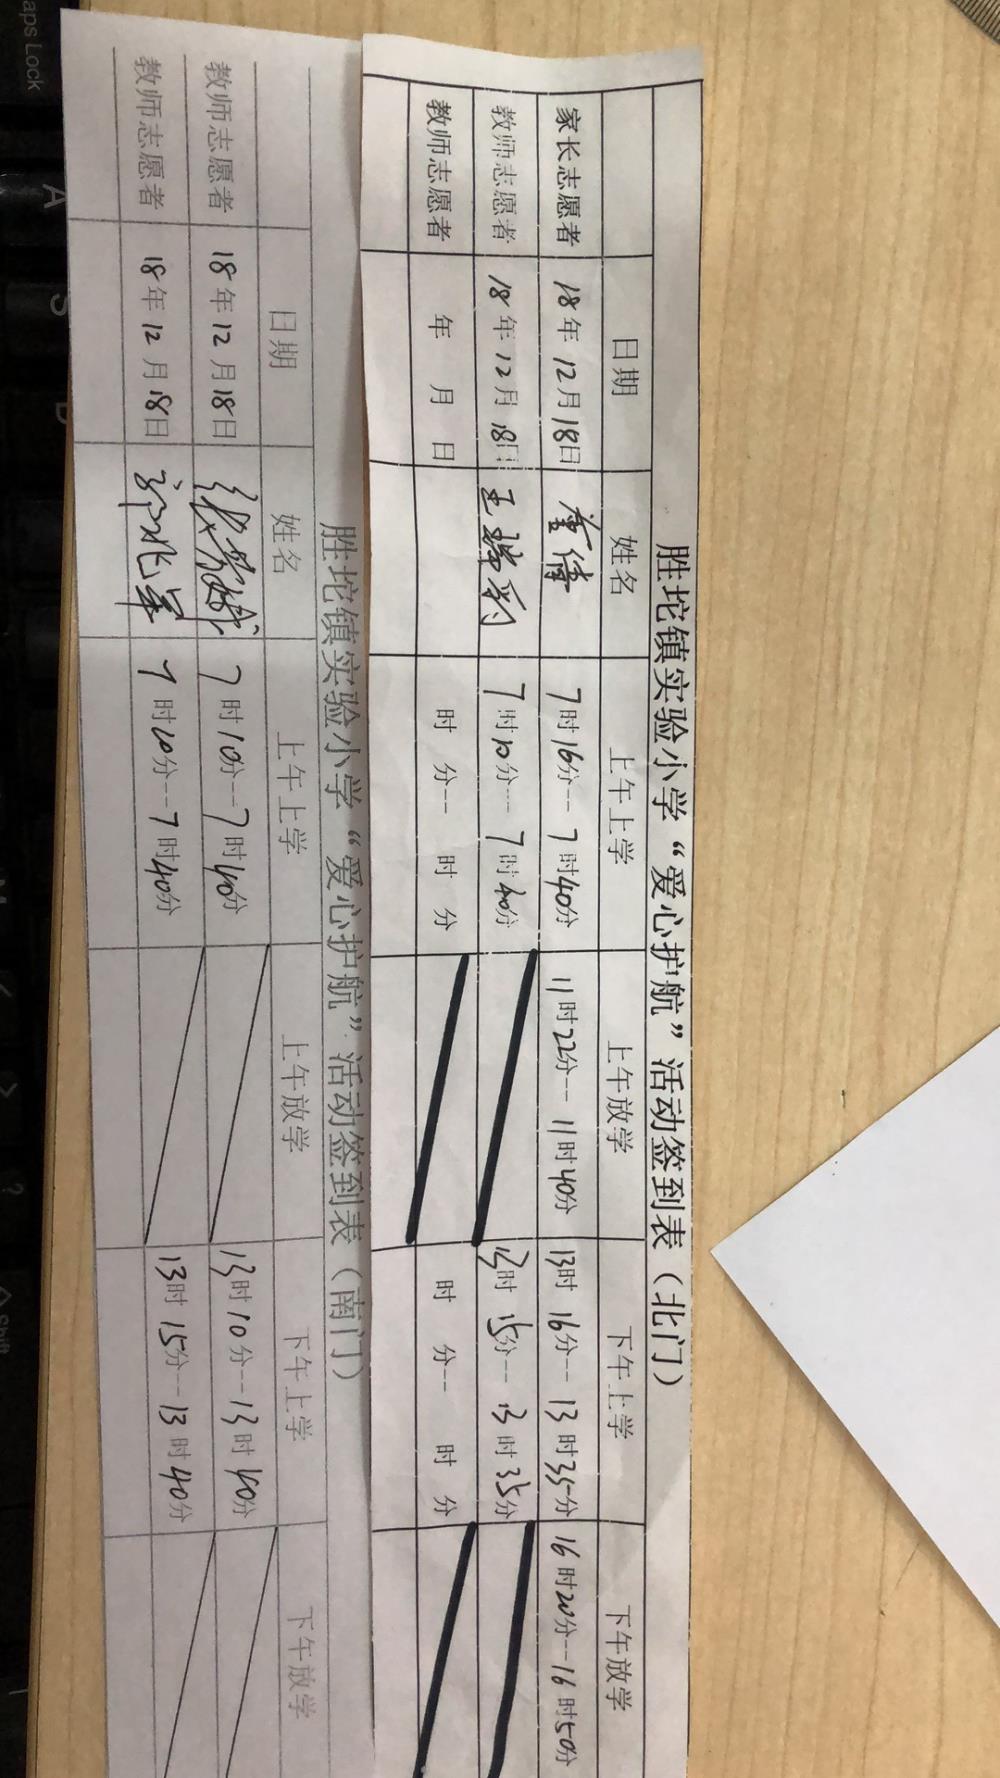 胜坨镇实验小学“爱心护航”活动签到表（北门）
日期 姓名 上午上学 上午放学 下午上学 下午放学
家长志愿者 18年12月18日 董倩 7时16分--7时40分 11时22分--11时40分 13时16分--13时35分 16时20分--16时50分
教师志愿者 18年12月18日 王瑞彩 7时10分--7时40分 13时15分--13时35分
教师志愿者 年 月 日 时 分-- 时 分 时 分-- 时 分
胜坨镇实验小学“爱心护航”活动签到表（南门）
日期 姓名 上午上学 上午放学 下午上学 下午放学
教师志愿者 18年12月18日 7时10分--7时40分 13时10分--13时40分
教师志愿者 18年12月18日 7时10分--7时40分 13时15分--13时40分
aps Lock
A
S
D
Shift